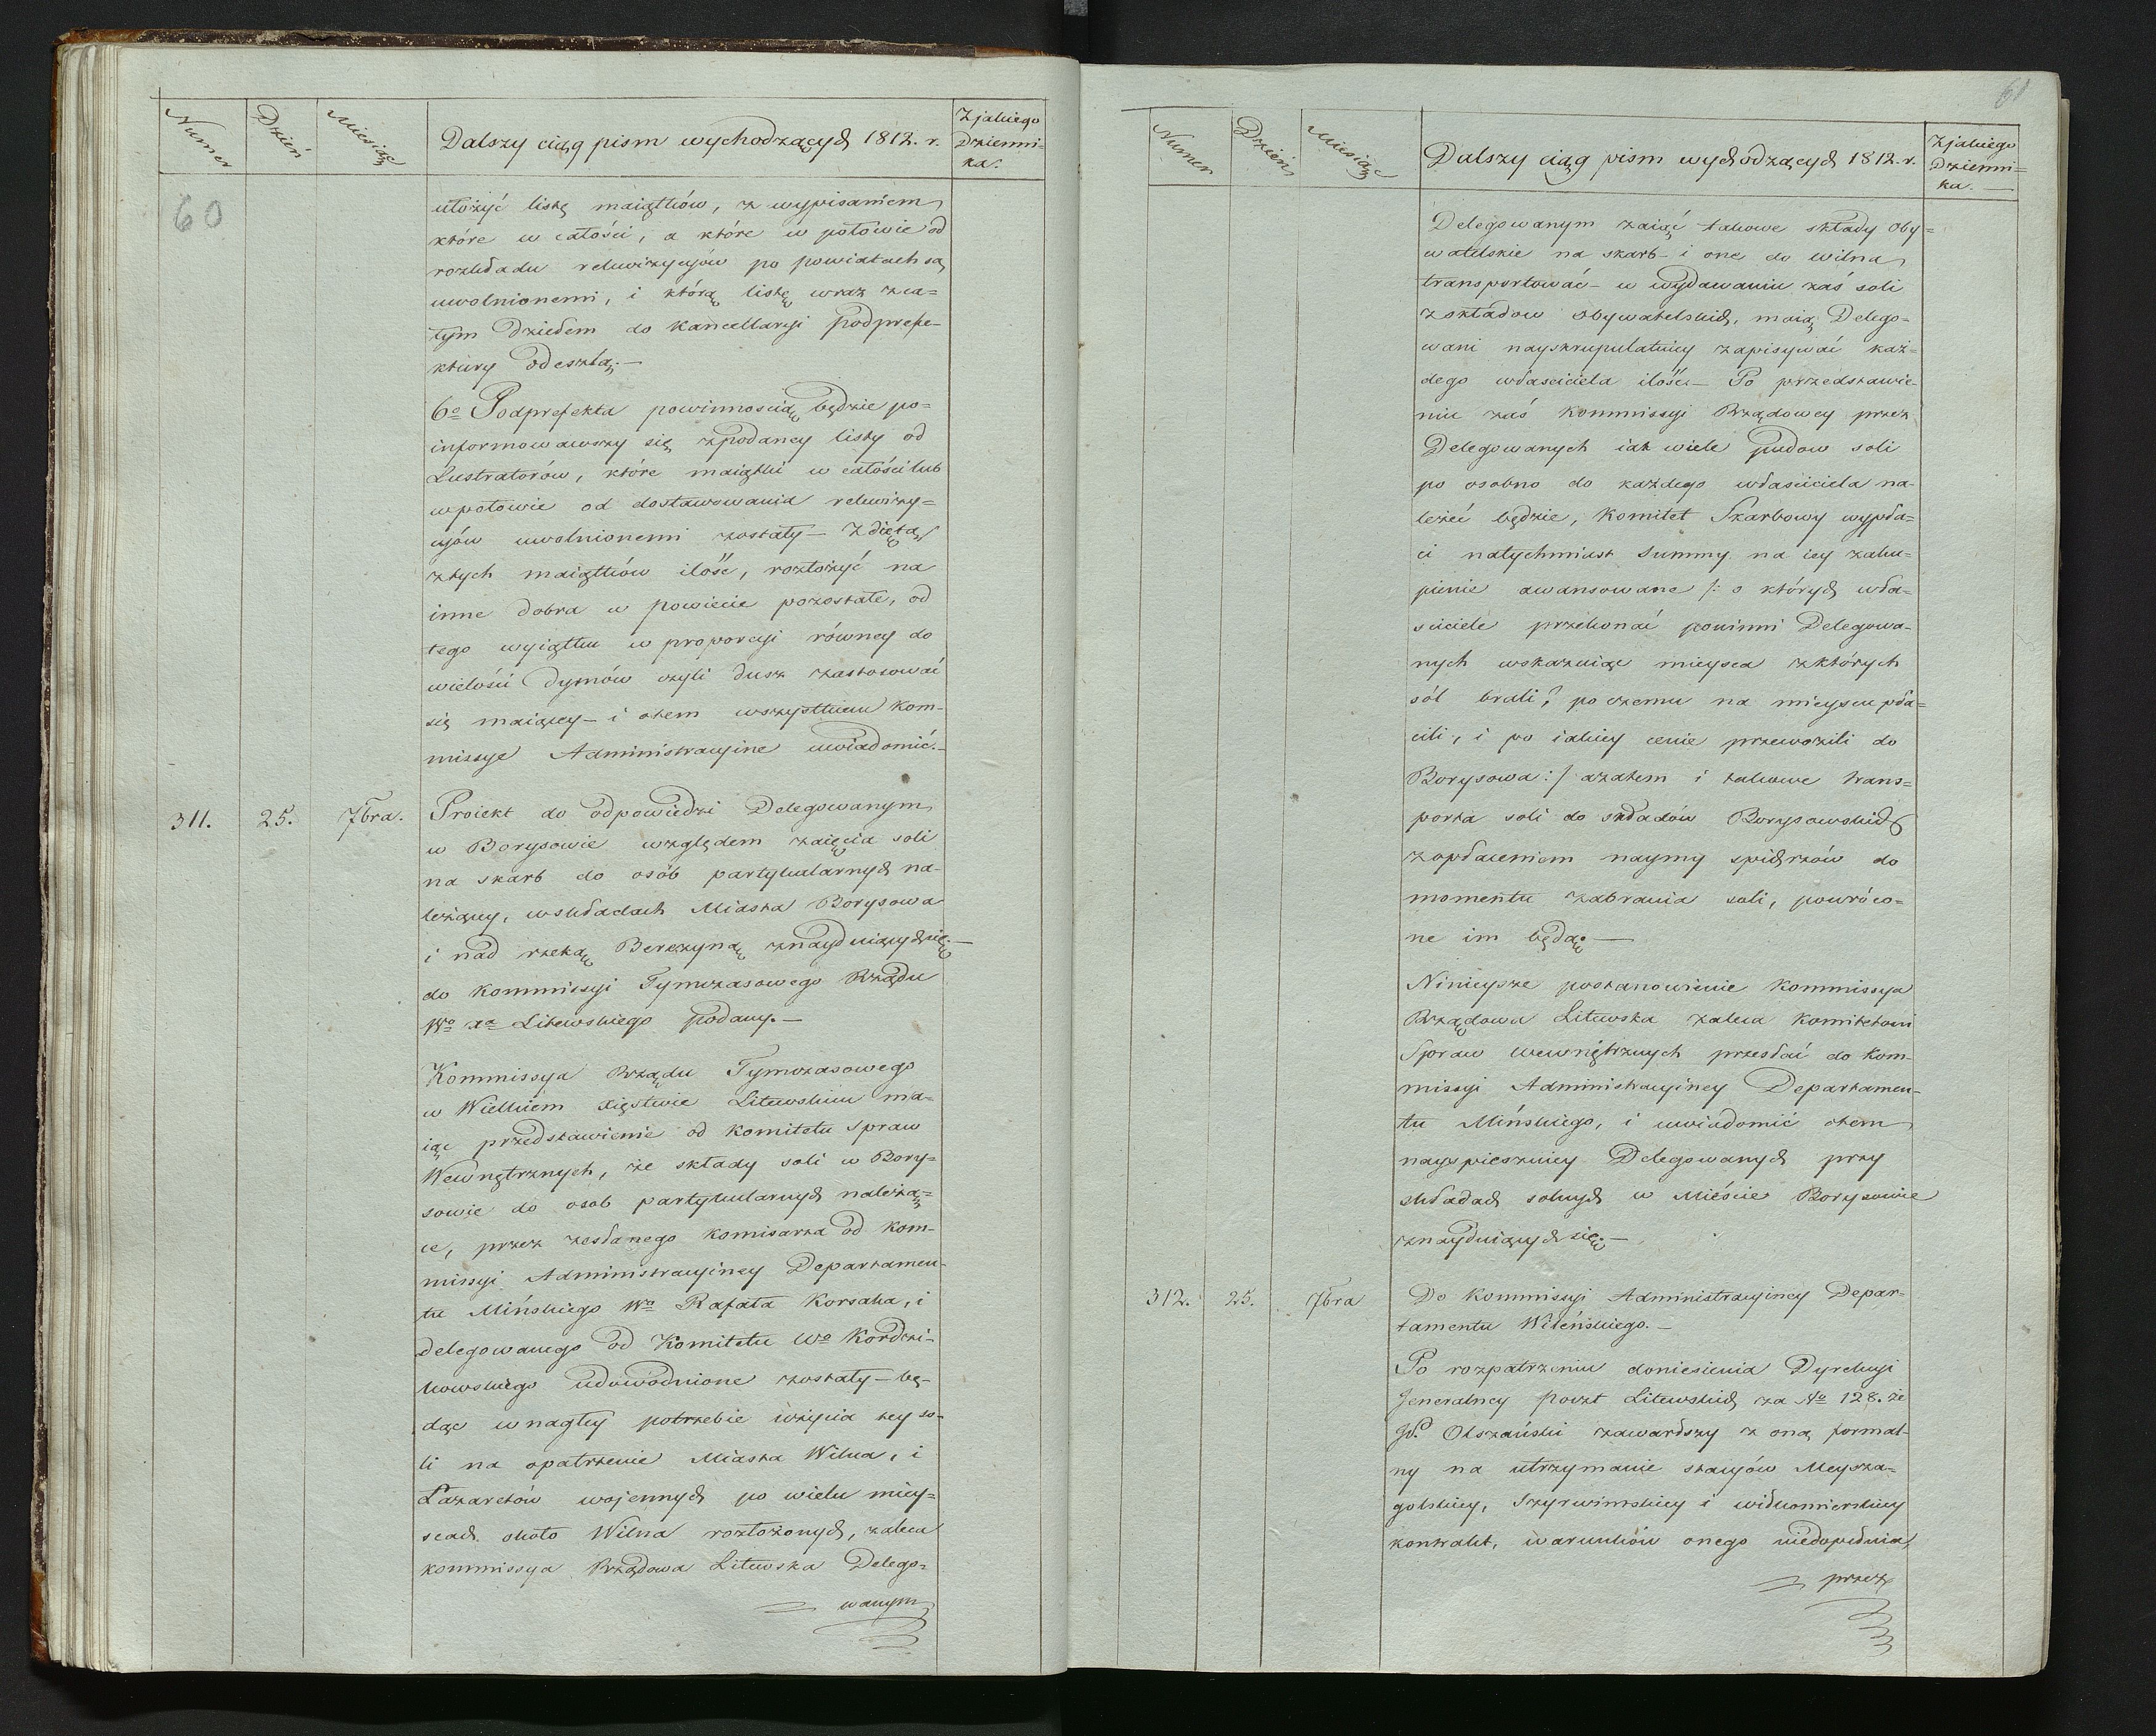 Numer
Dzień
Miesiąc
Dalszy ciąg pism wychodzących 1812. r.
Z jakiego
Dzienni=
ka.
60
ułożyć listę maiątków, z wypisaniem
które w całości, a które w połowie od
rozkładu rekwizycyów po powiatach są
uwolnionemi, i którą listę wraz z ca=
łym dziełem do Kancellaryi Podprefe-
ktury odeszlą.—
6o Podprefekta powinnością będzie po=
informowawszy się zpodaney listy od
Lustratorów, które maiątki w całości lub
wpołowie od dostawowania rekwizy=
cyów uwolnionemi zostały — Zdiętą
ztych maiątków ilość, rozłożyć na
inne dobra w powiecie pozostałe, od
tego wyiątku w proporcyi równey do
wielości dymów czyli dusz zastosować
się maiącey — i otem wszystkiem Kom-
missye Administracyine uwiadomić.—
311.
25.
7bra.
Proiekt do odpowiedzi Delegowanym
w Borysowie względem zaięcia soli
na skarb do osób partykularnych na-
leżącey, wskładach Miasta Borysowa
i nad rzeką Berezyną znayduiących się.—
do Kommissyi Tymczasowego Rządu
Wo Xa Litewskiego podany.—
Kommissya Rządu Tymczasowego
w Wielkiem Xięstwie Litewskim ma-
iąc przedstawienie od Komitetu Spraw
Wewnętrznych, że składy soli w Bory=
sowie do osob partykularnych należą=
ce, przez zesłanego Komisarza od Kom-
missyi Administracyiney Departamen-
tu Mińskiego Wo Rafała Korsaka, i
delegowanego od Komitetu Wo Kordzi-
kowskiego udowodnione zostały — bę-
dąc wnagłey potrzebie użycia tey so-
li na opatrzenie Miasta Wilna, i
Lazaretów wojennych po wielu miey=
scach około Wilna rozłożonych, zaleca
Kommissya Rządowa Litewska Delego=
wanym
Numer
Dzień
Miesiąc
Dalszy ciąg pism wychodzących 1812. r.
Z jakiego
Dzienni=
ka.
61
Delegowanym zaiąć takowe składy oby=
watelskie na skarb — i one do Wilna
transportować — w wydawaniu zaś soli
zskładow obywatelskich, maią Delego=
wani nayskrupulatniey zapisywać każ=
dego własciciela ilość — Po przedstawie-
niu zaś Kommissyi Rządowey przez
Delegowanych iak wiele pudow soli
po osobno do każdego właściciela na-
leżeć będzie, Komitet Skarbowy wypła=
ci natychmiast Summy na iey zaku=
pienie awansowane /: o których wła=
sciciele przekonać powinni Delegowa-
nych wskazuiąc mieysca zktórych
sól brali, po czemu na mieyscu pła=
cili, i po iakiey cenie przewozili do
Borysowa :/ azatem i takowe trans=
porta soli do składów Borysowskich
zopłaceniem naymy spichrzów do
momentu zabrania soli, powróco=
ne im będą.—
Ninieysze postanowienie Kommissya
Rządowa Litewska zaleca Komitetowi
Spraw Wewnętrznych przesłać do Kom-
missyi Administracyiney Departamen-
tu Mińskiego, i uwiadomić otem
nayspieszniey Delegowanych przy
składach solnych w Mieście Borysowie
znayduiących się.—
312.
25.
7bra
Do Kommissyi Administracyiney Depar-
tamentu Wileńskiego.—
Po rozpatrzeniu doniesienia Dyrekcyi
Jeneralney poczt Litewskich za No 128. że
JP. Olszański zawarłszy z oną formal-
ny na utrzymanie stacyów Meysza=
golskiey, Szyrwintskiey i Wiłkomierskiey
kontrakt, warunków onego niedopełnia
przez